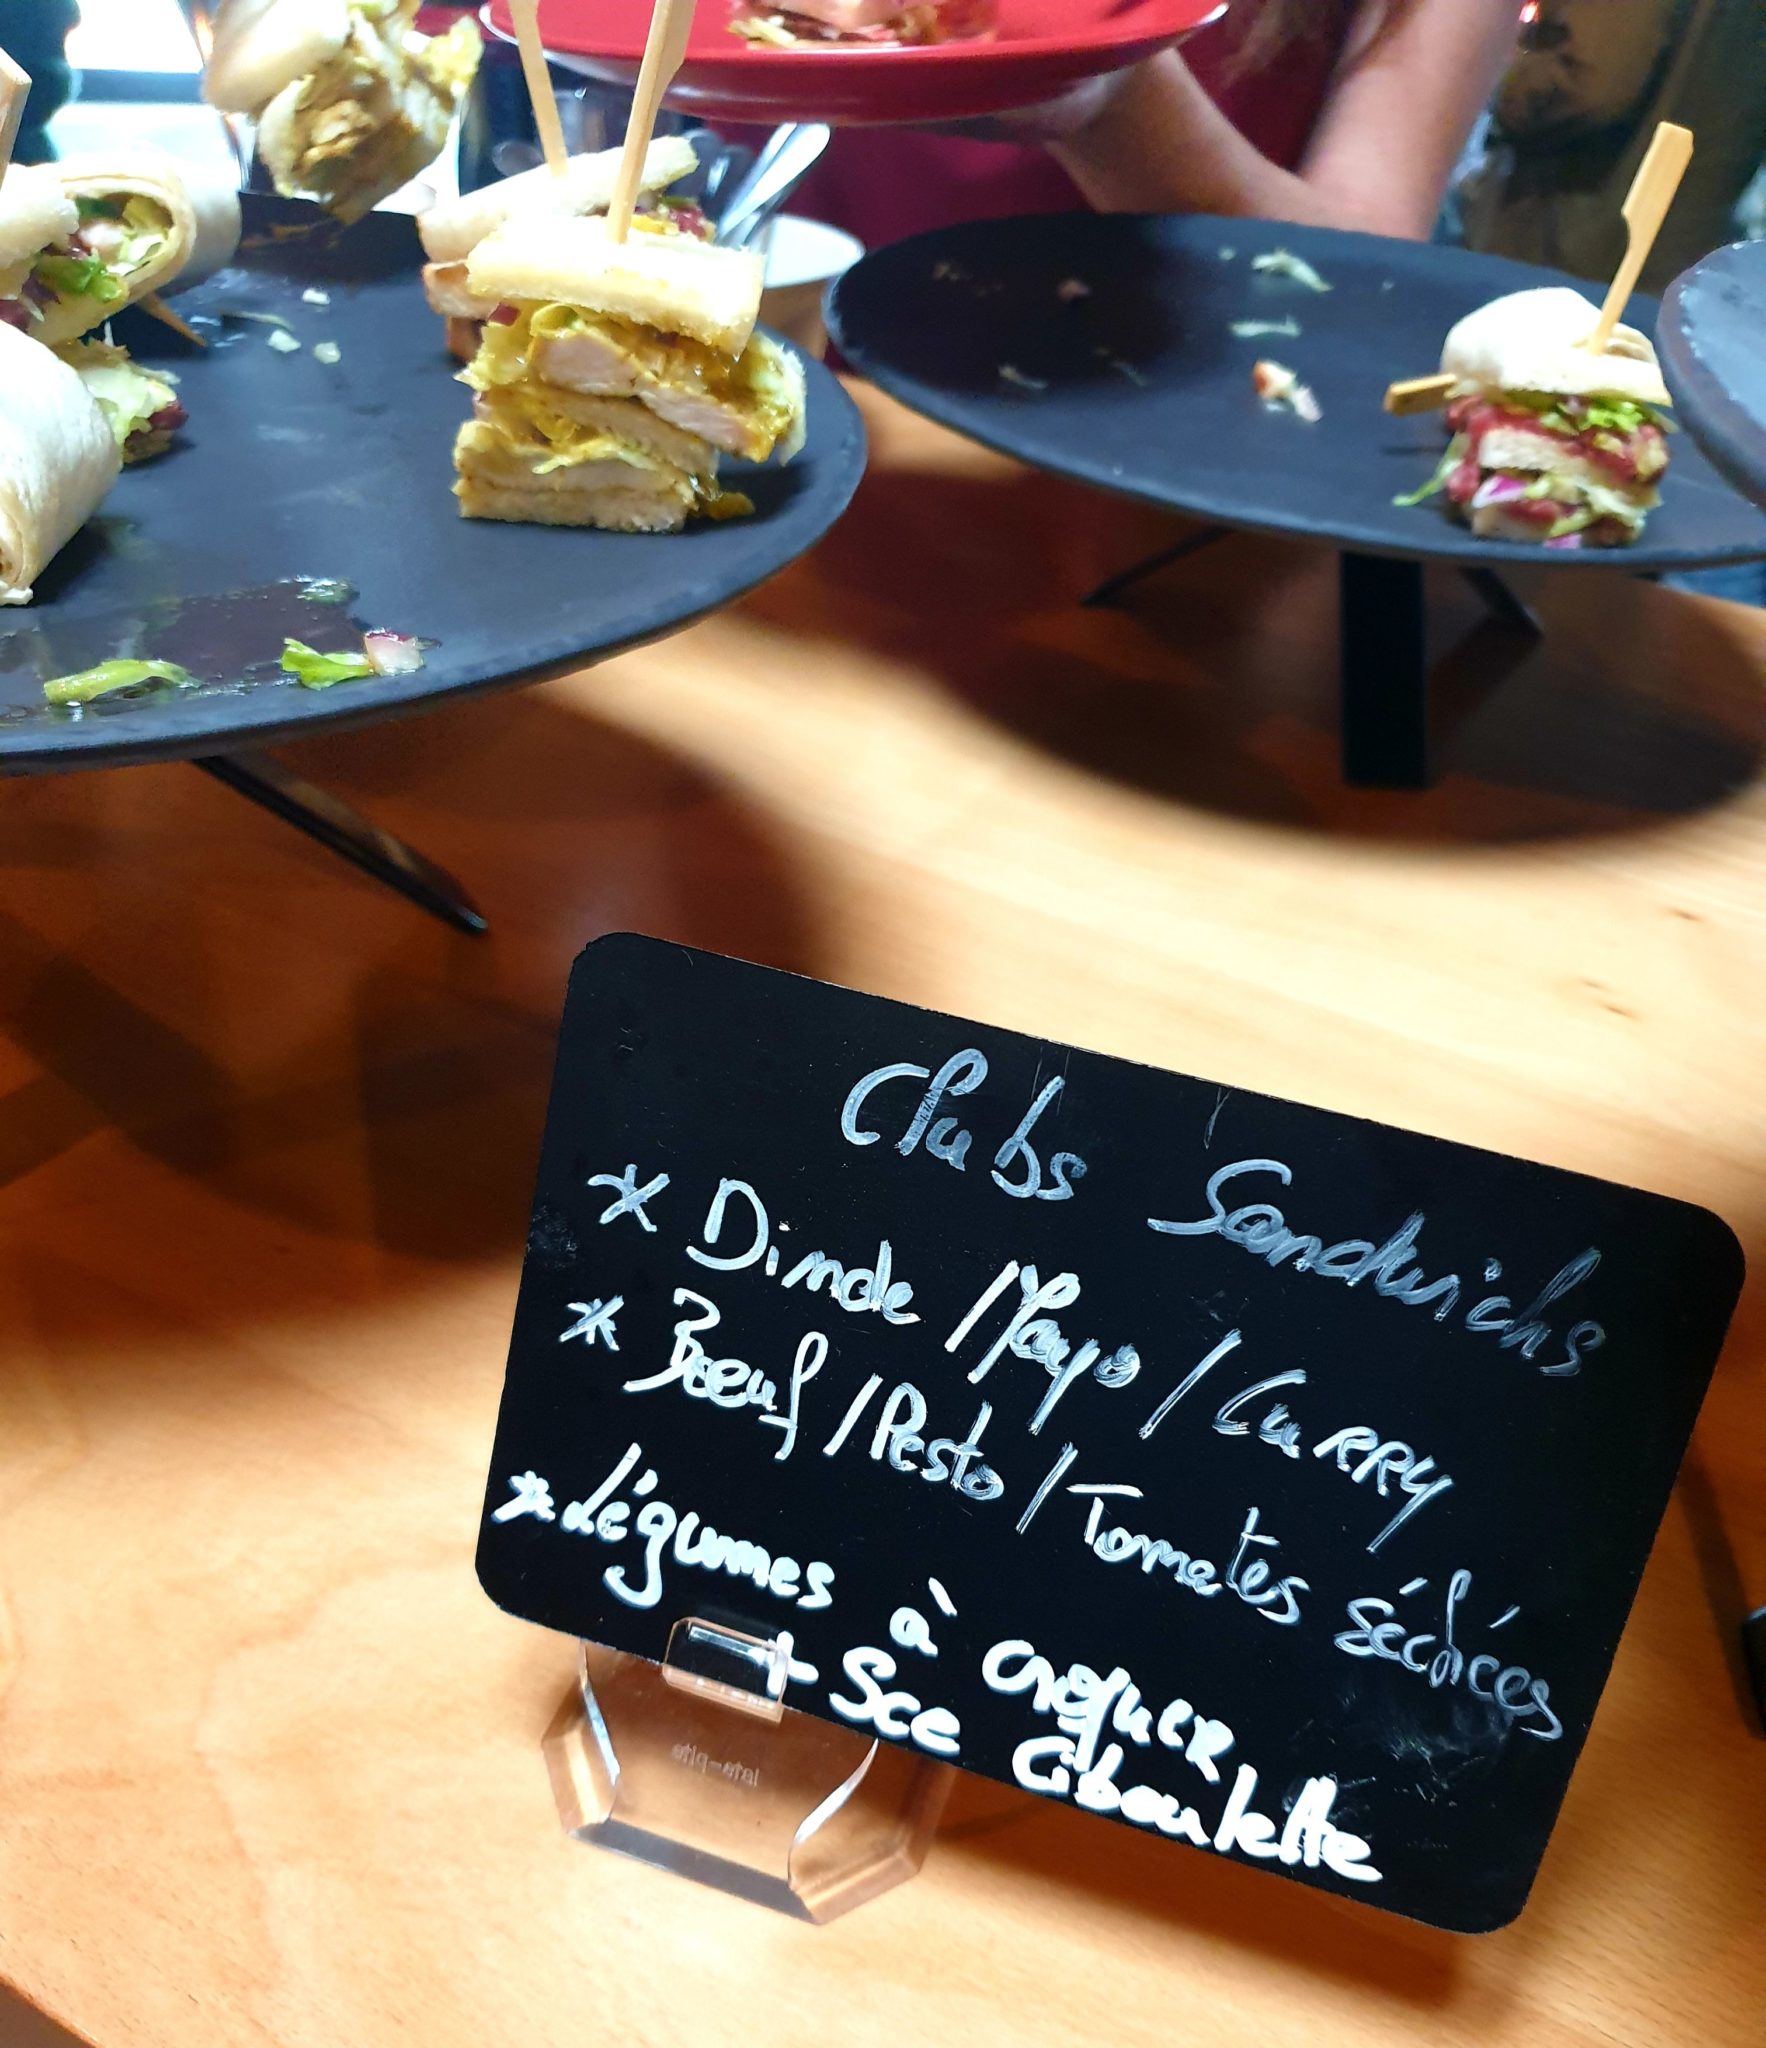 Clubs Sandwichs
* Dinde / Mayo / Curry
* Bœuf / Pesto / Tomates séchées
* Légumes à croquer
+ Sce Ciboulette